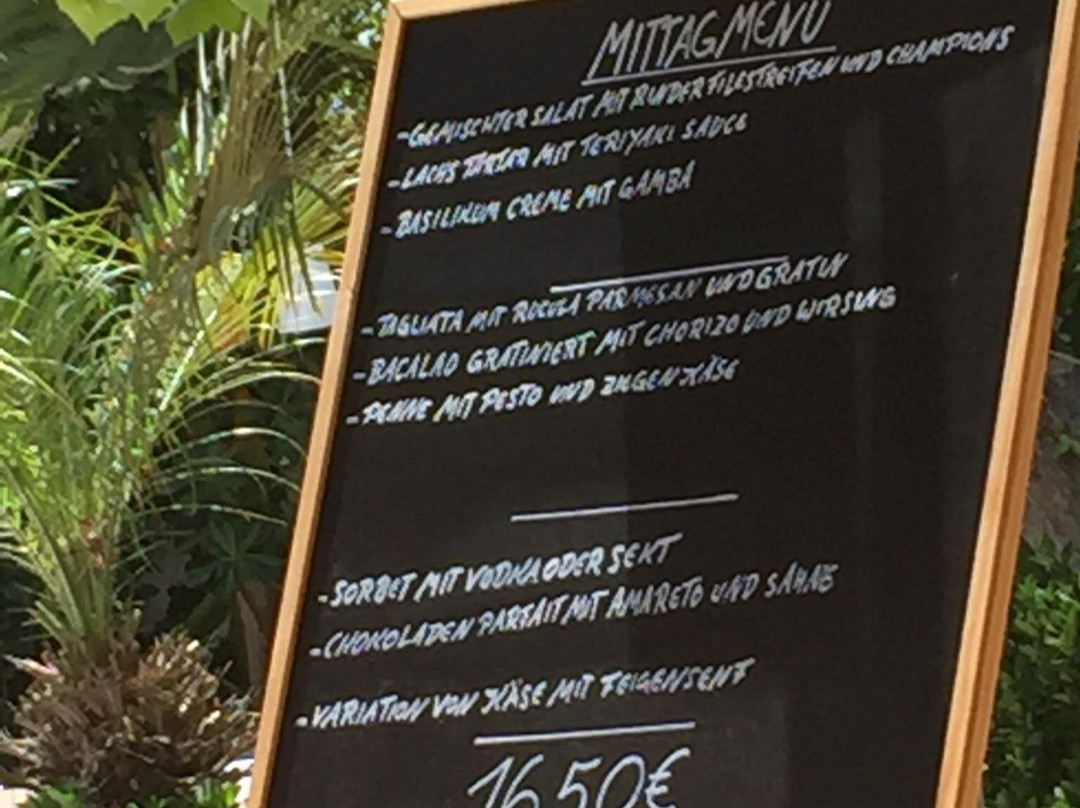 MITTAGMENÜ
-GEMISCHTER SALAT MIT RINDERFILESTREIFEN UND CHAMPIONS
-LACHS TARTAR MIT TERIYAKI SAUCE
-BASILIKUM CREME MIT GAMBA
-TAGLIATA MIT RUCULA PARMESAN UND GRATIN
-BACALAO GRATINIERT MIT CHORIZO UND WIRSING
-PENNE MIT PESTO UND ZIEGENKÄSE
-SORBET MIT VODKA ODER SEKT
-CHOKOLADEN PARFAIT MIT AMARETO UND SAHNE
-VARIATION VON KÄSE MIT FEIGENSENF
16,50€